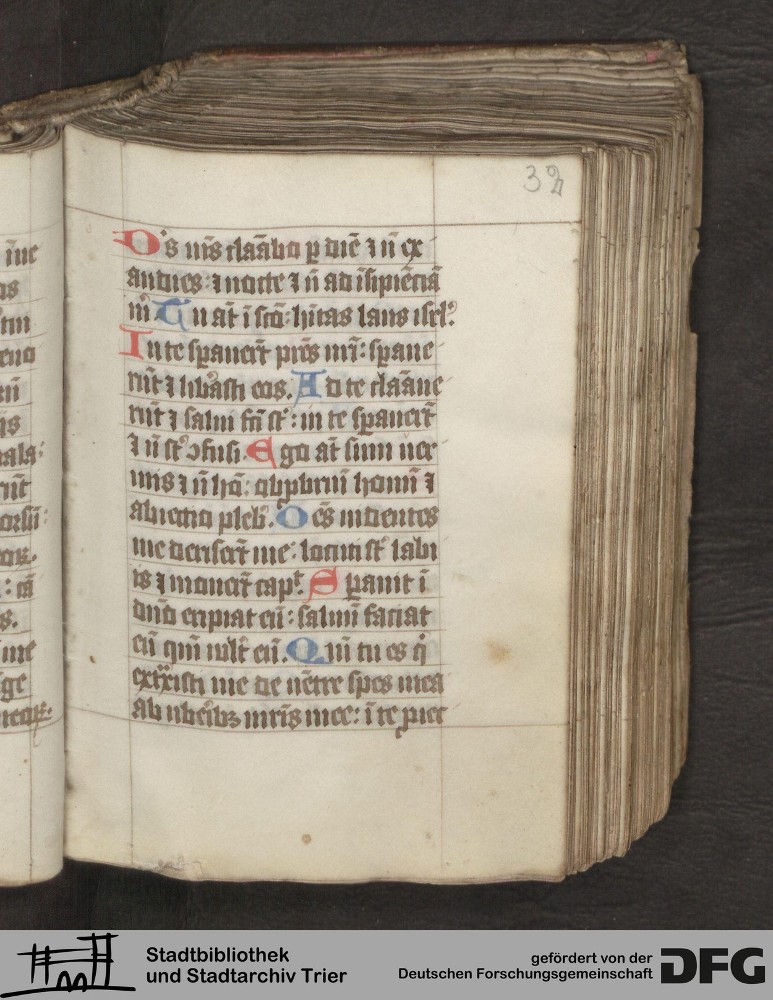 32
D's ms̄ clāabo p diē ⁊ n̄ ex
audies : ⁊ nocte ⁊ n̄ ad īsipiēciā
m̄ Tu at̄ ī scō : hītas laus isrl'
In te spauert̄ prēs mi : spaue
rūt ⁊ libasti eos. Ad te clāaue
rūt ⁊ salui fci st̄ : in te spauert̄
⁊ n̄ st̄ ꝯfusi. Ego at̄ sum uer
mis ⁊ n̄ hō : obpbriū homī ⁊
abiectio pleb'. Oēs uidentes
me derisert̄ me : locuti st̄ labi
is ⁊ mouert̄ capt. Sperauit ī
dnō eripiat eū : saluū faciat
eū qm̄ uult eū. Qm̄ tu es q
extxisti me de uētre spes mea
ab uberibꝫ mris mee : ī te piec
īue
ala:
me
Stadtbibliothek
und Stadtarchiv Trier
gefördert von der
Deutschen Forschungsgemeinschaft
DFG